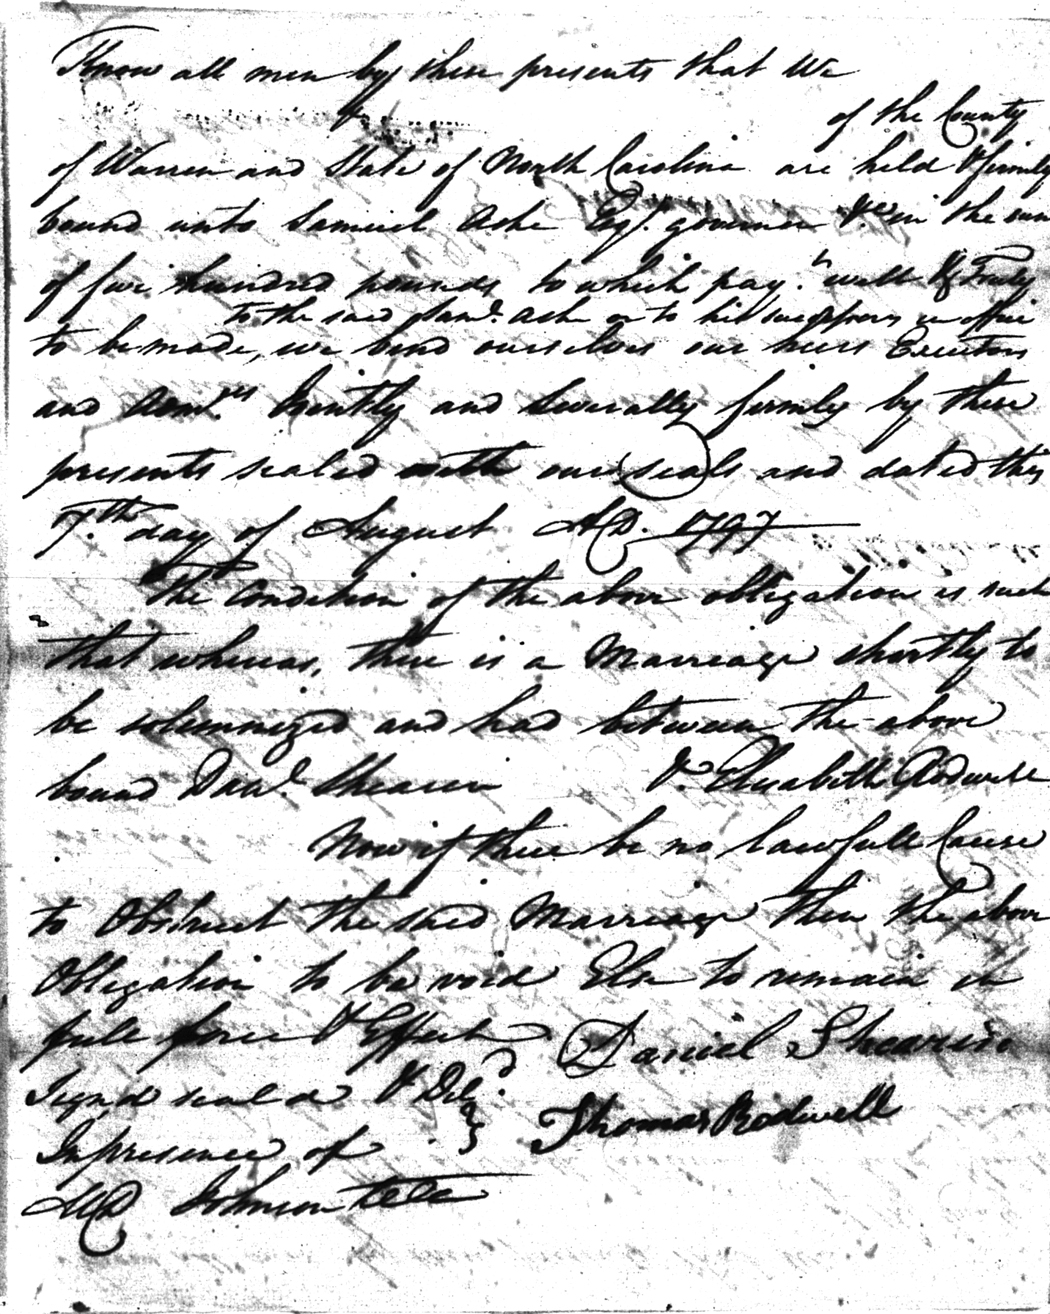 Know all men by these presents that We
of the County
of Warren and State of North Carolina are held & firmly
bound unto Samuel Ashe Esqr. governor &c. in the sum
of five hundred pounds to which paymt. well & Truly
To the said Saml. Ashe or to his successors in office
to be made, we bind ourselves our heirs Executors
and Admrs Jointly and Severally firmly by these
presents sealed with our seals and dated this
7.th day of August AD. 1797
The Condition of the above obligation is such
that whereas, there is a Marriage shortly to
be solemnized and had between the above
bound Danl. Shearin &. Elizabeth Rodwell
Now if there be no lawfull Cause
to Obstruct the said Marriage then the above
Obligation to be void Else to remain in
full force & Effect Daniel Shearin
Signd seald & Deld.
In presence of Thomas Rodwell
MD Johnson